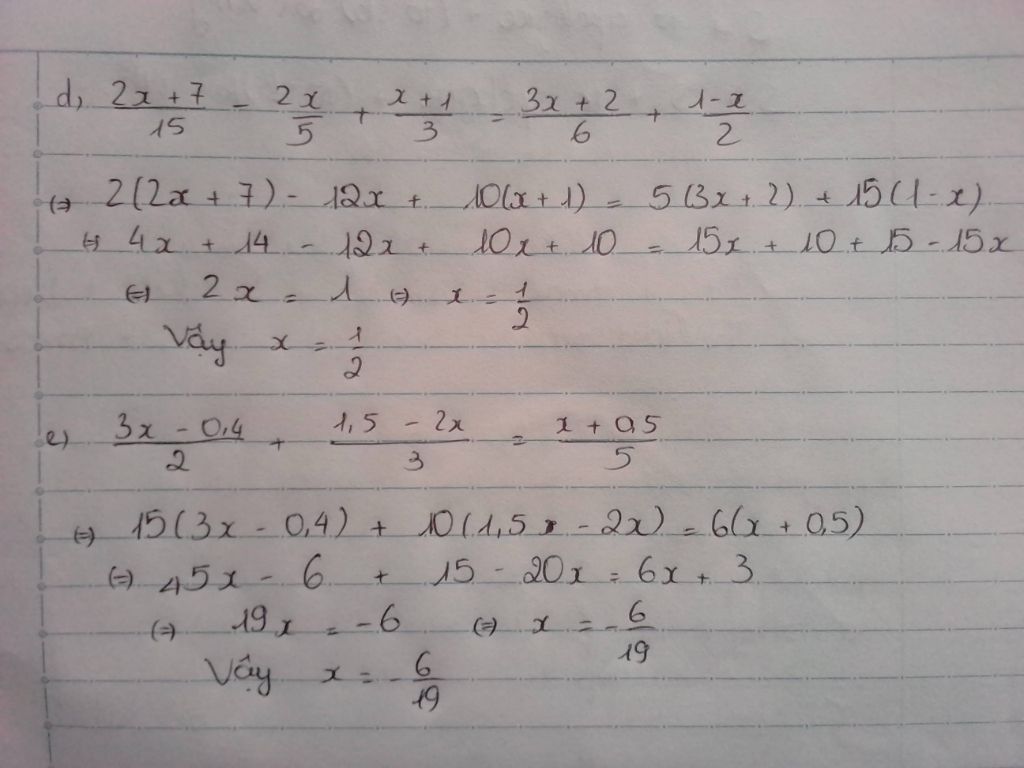 d, (2x + 7)/15 - 2x/5 + (x + 1)/3 = (3x + 2)/6 + (1 - x)/2
(=) 2(2x + 7) - 12x + 10(x + 1) = 5(3x + 2) + 15(1 - x)
(=) 4x + 14 - 12x + 10x + 10 = 15x + 10 + 15 - 15x
(=) 2x = 1 (=) x = 1/2
Vậy x = 1/2
e) (3x - 0,4)/2 + (1,5 - 2x)/3 = (x + 0,5)/5
(=) 15(3x - 0,4) + 10(1,5 - 2x) = 6(x + 0,5)
(=) 45x - 6 + 15 - 20x = 6x + 3
(=) 19x = -6 (=) x = -6/19
Vậy x = -6/19